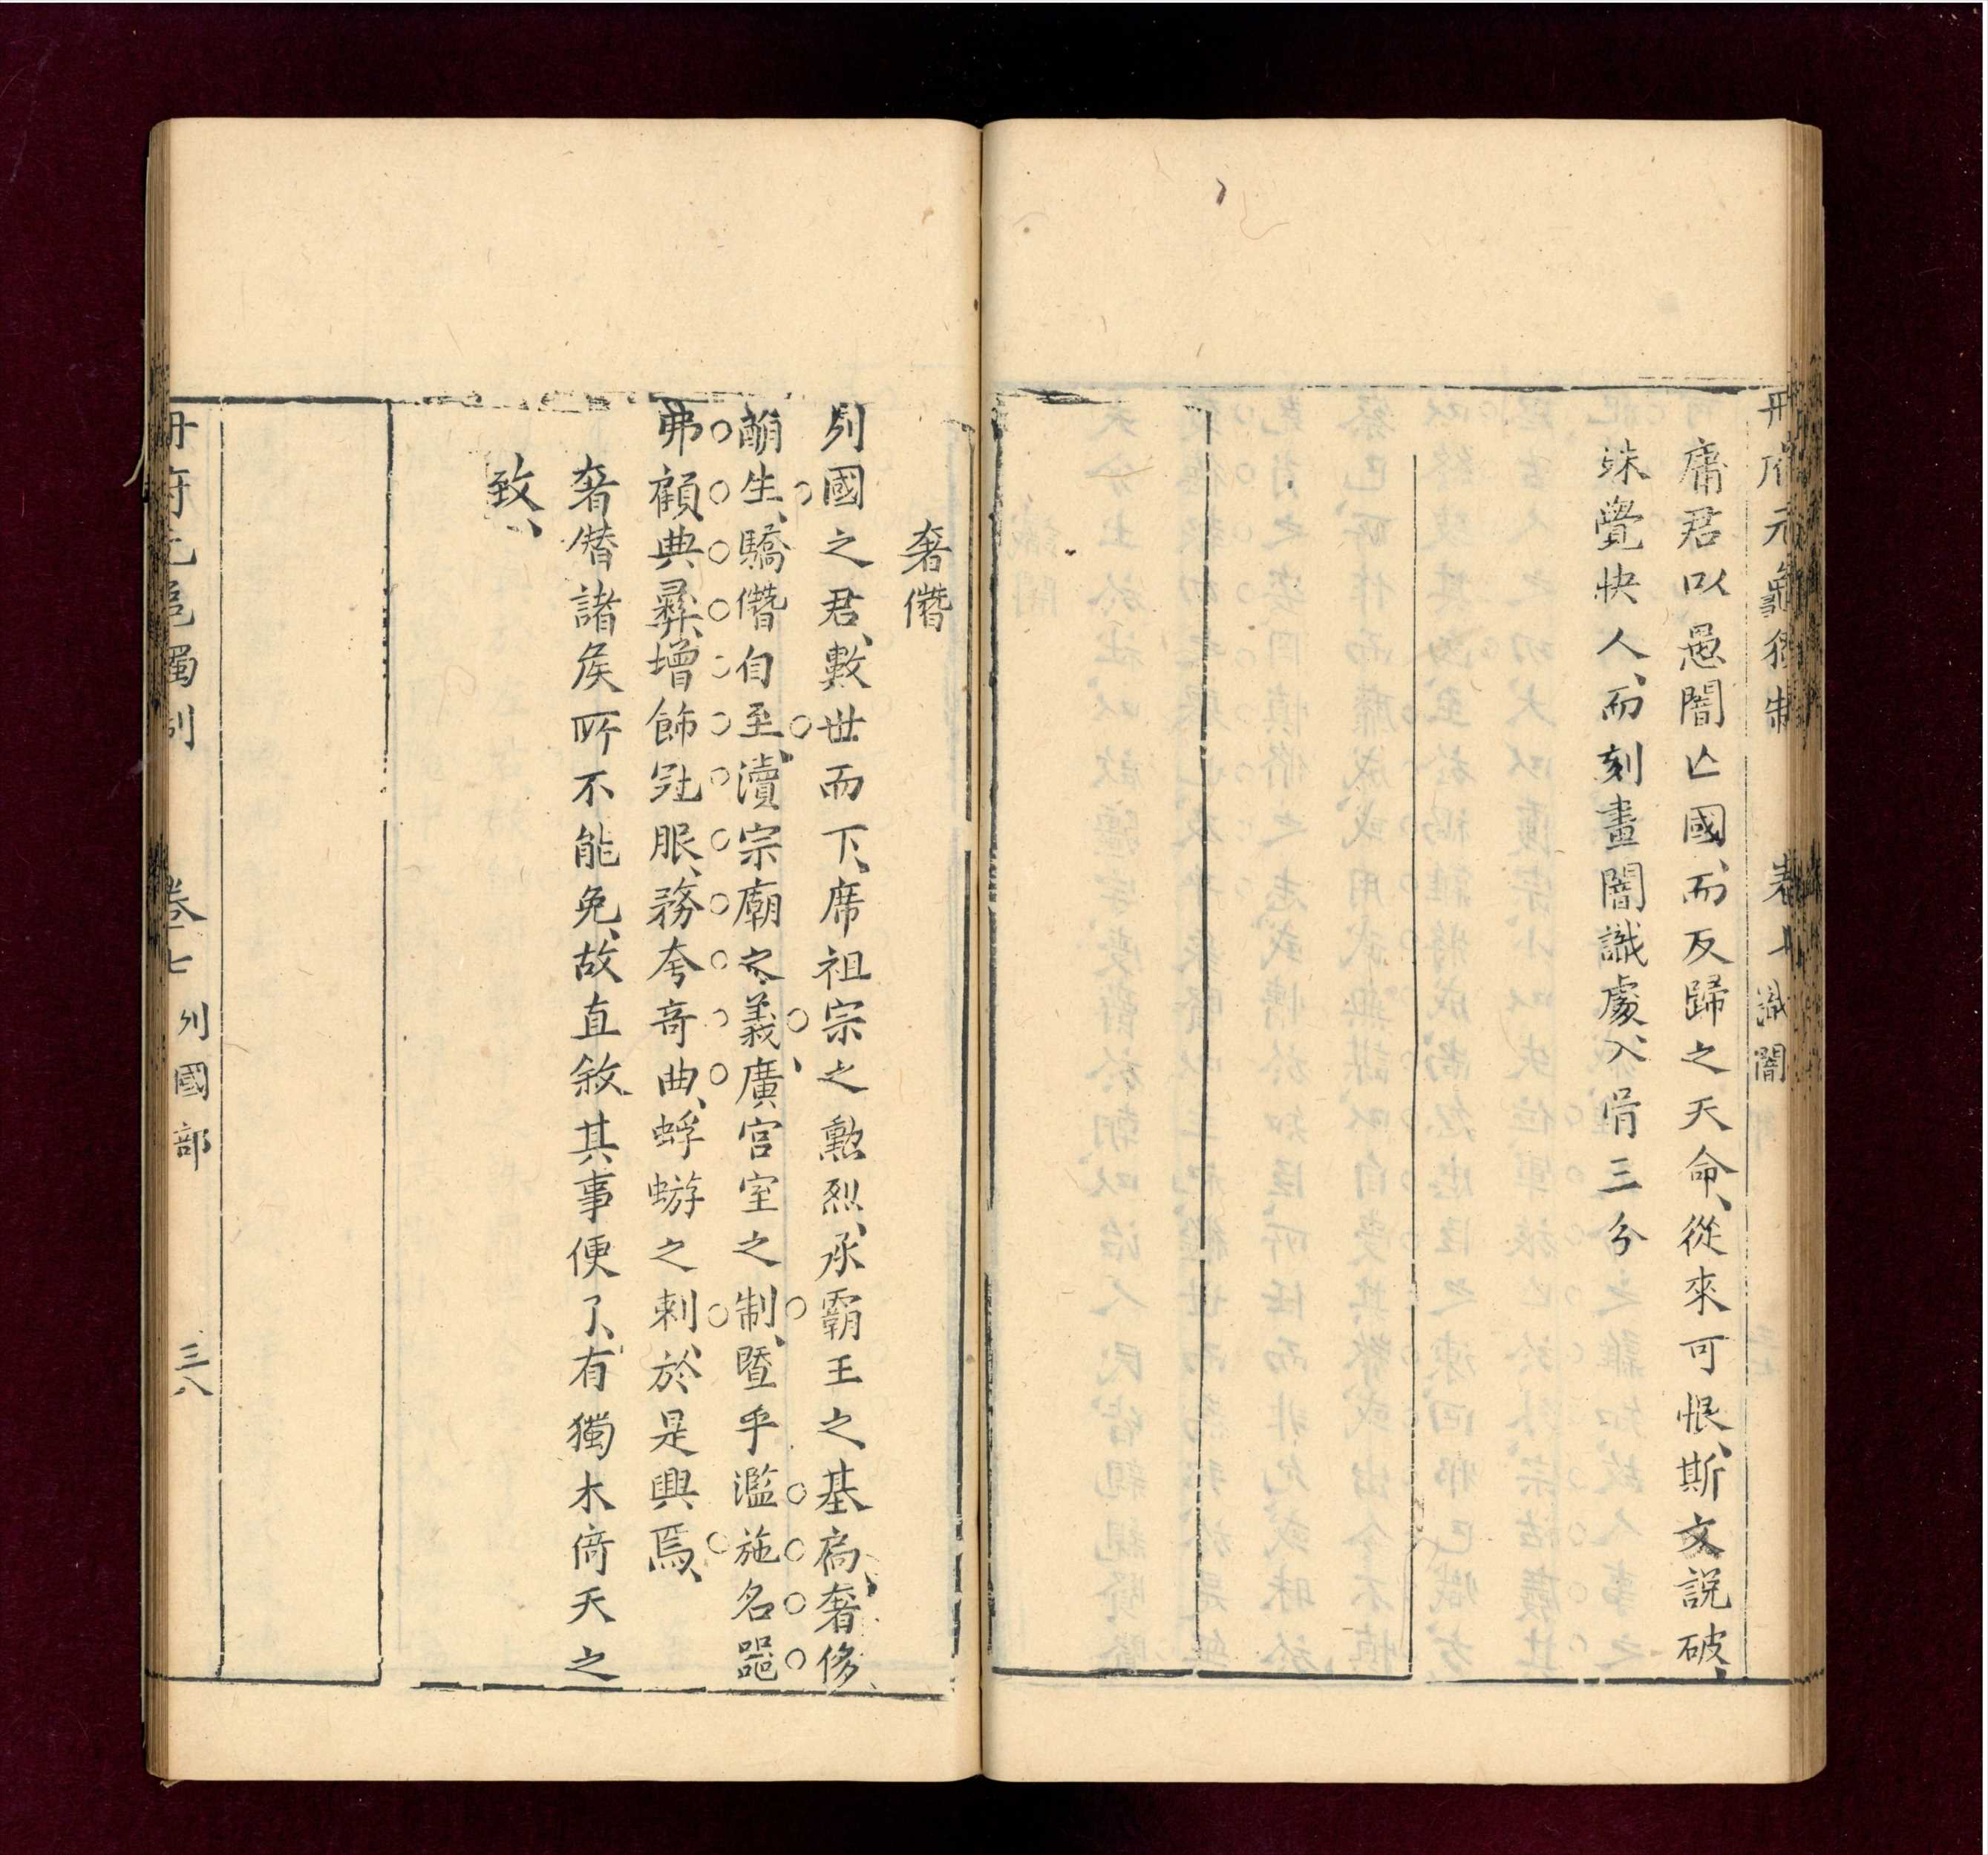 冊府元龜獨制 卷七 識闇
庸君以愚闇亡國、而反歸之天命、從來可恨、斯文說破、
殊覺快人、而刻畫闇識處、入骨三分
奢僭
列國之君、數世而下、席祖宗之勲烈、承霸王之基裔、奢侈
萠生、驕僭自至、瀆宗廟之義、廣宮室之制、曁乎濫施名器
弗顧典彞、增飾冠服、務夸奇曲、蜉蝣之刺、於是興焉、
奢僭諸矦所不能免、故直敘其事便了、有獨木倚天之
致、
冊府元龜獨制 卷七 列國部 三八